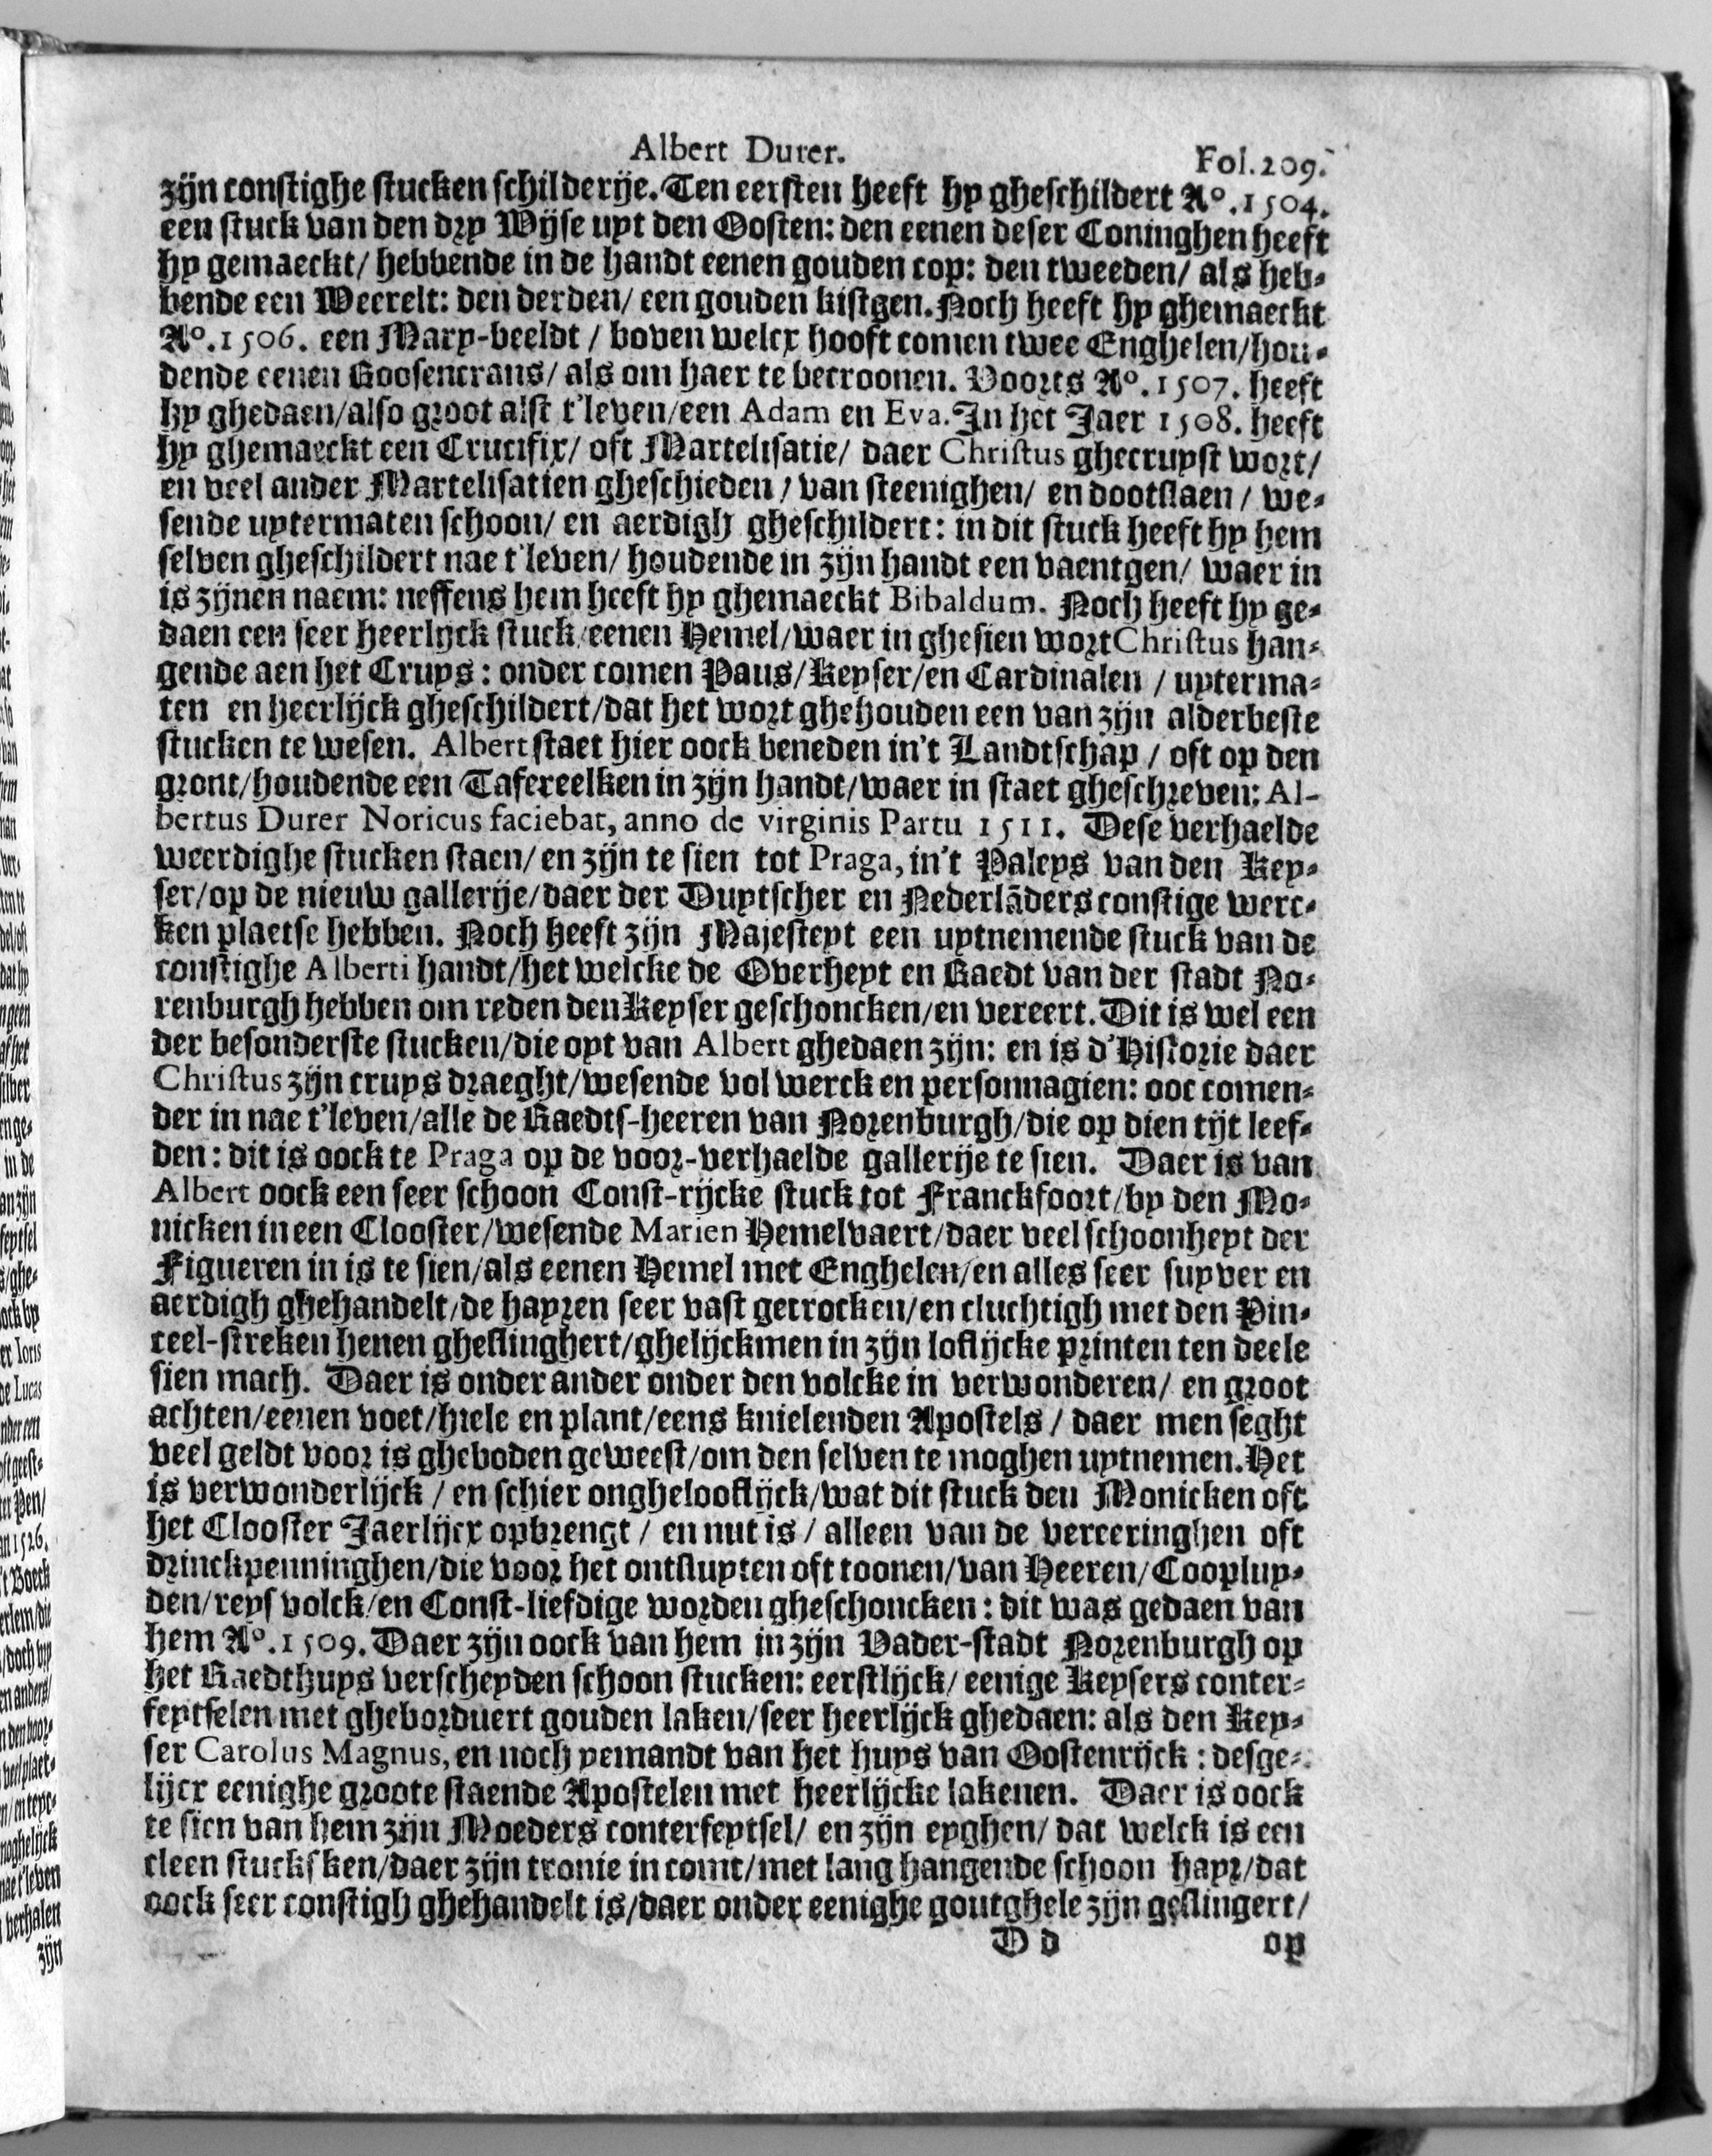 Albert Durer. Fol.209.
zijn constighe stucken schilderije. Ten eersten heeft hy gheschildert Aº.1504.
een stuck van den dry Wijse uyt den Oosten: den eenen deser Coninghen heeft
hy gemaeckt/ hebbende in de handt eenen gouden cop: den tweeden/ als heb-
bende een Weerelt: den derden/ een gouden kistgen. Noch heeft hy ghemaeckt
Aº.1506. een Mary-beeldt / boven welcx hooft comen twee Enghelen/hou-
dende eenen Roosencrans/ als om haer te becroonen. Voorts Aº.1507. heeft
hy ghedaen/also groot alst t'leven/een Adam en Eva. In het Jaer 1508. heeft
hy ghemaeckt een Crucifix/ oft Martelisatie/ daer Christus ghecruyst wort/
en veel ander Martelisatien gheschieden / van steenighen/ en dootslaen / we-
sende uytermaten schoon/ en aerdigh gheschildert: in dit stuck heeft hy hem
selven gheschildert nae t'leven/ houdende in zijn handt een vaentgen/ waer in
is zijnen naem: neffens hem heeft hy ghemaeckt Bibaldum. Noch heeft hy ge-
daen een seer heerlijck stuck/eenen Hemel/waer in ghesien wort Christus han-
gende aen het Cruys: onder comen Paus/Keyser/en Cardinalen / uyterma-
ten en heerlijck gheschildert/dat het wort ghehouden een van zijn alderbeste
stucken te wesen. Albert staet hier oock beneden in't Landtschap / oft op den
gront/houdende een Tafereelken in zijn handt/waer in staet gheschreven: Al-
bertus Durer Noricus faciebat, anno de virginis Partu 1511. Dese verhaelde
weerdighe stucken staen/ en zijn te sien tot Praga, in't Paleys van den Key-
ser/op de nieuw gallerije/daer der Duytscher en Nederlãders constige werc-
ken plaetse hebben. Noch heeft zijn Majesteyt een uytnemende stuck van de
constighe Alberti handt/het welcke de Overheyt en Raedt van der stadt No-
renburgh hebben om reden den Keyser geschoncken/en vereert. Dit is wel een
der besonderste stucken/die oyt van Albert ghedaen zijn: en is d'Historie daer
Christus zijn cruys draeght/wesende vol werck en personnagien: ooc comen-
der in nae t'leven/alle de Raedts-heeren van Norenburgh/die op dien tijt leef-
den: dit is oock te Praga op de voor-verhaelde gallerije te sien. Daer is van
Albert oock een seer schoon Const-rijcke stuck tot Franckfoort/by den Mo-
nicken in een Clooster/wesende Marien Hemelvaert/daer veel schoonheyt der
Figueren in is te sien/als eenen Hemel met Enghelen/en alles seer suyver en
aerdigh ghehandelt/de hayren seer vast getrocken/en cluchtigh met den Pin-
ceel-streken henen gheslinghert/ghelijckmen in zijn loflijcke printen ten deele
sien mach. Daer is onder ander onder den volcke in verwonderen/ en groot
achten/eenen voet/hiele en plant/eens knielenden Apostels / daer men seght
veel geldt voor is gheboden geweest/om den selven te moghen uytnemen. Het
is verwonderlijck / en schier onghelooflijck/wat dit stuck den Monicken oft
het Clooster Jaerlijcx opbrengt / en nut is / alleen van de vereeringhen oft
drinckpenninghen/die voor het ontsluyten oft toonen/van Heeren/Cooplup-
den/reys volck/en Const-liefdige worden gheschoncken: dit was gedaen van
hem Aº.1509. Daer zijn oock van hem in zijn Vader-stadt Norenburgh op
het Raedthuys verscheyden schoon stucken: eerstlijck/ eenige Keysers conter-
feytselen met gheborduert gouden laken/seer heerlijck ghedaen: als den Key-
ser Carolus Magnus, en noch yemandt van het huys van Oostenrijck: desge-
lijcx eenighe groote staende Apostelen met heerlijcke lakenen. Daer is oock
te sien van hem zijn Moeders conterfeytsel/ en zijn eyghen/ dat welck is een
cleen stucksken/daer zijn tronie in comt/met lang hangende schoon hayr/dat
oock seer constigh ghehandelt is/daer onder eenighe goutghele zijn geslingert/
D d op